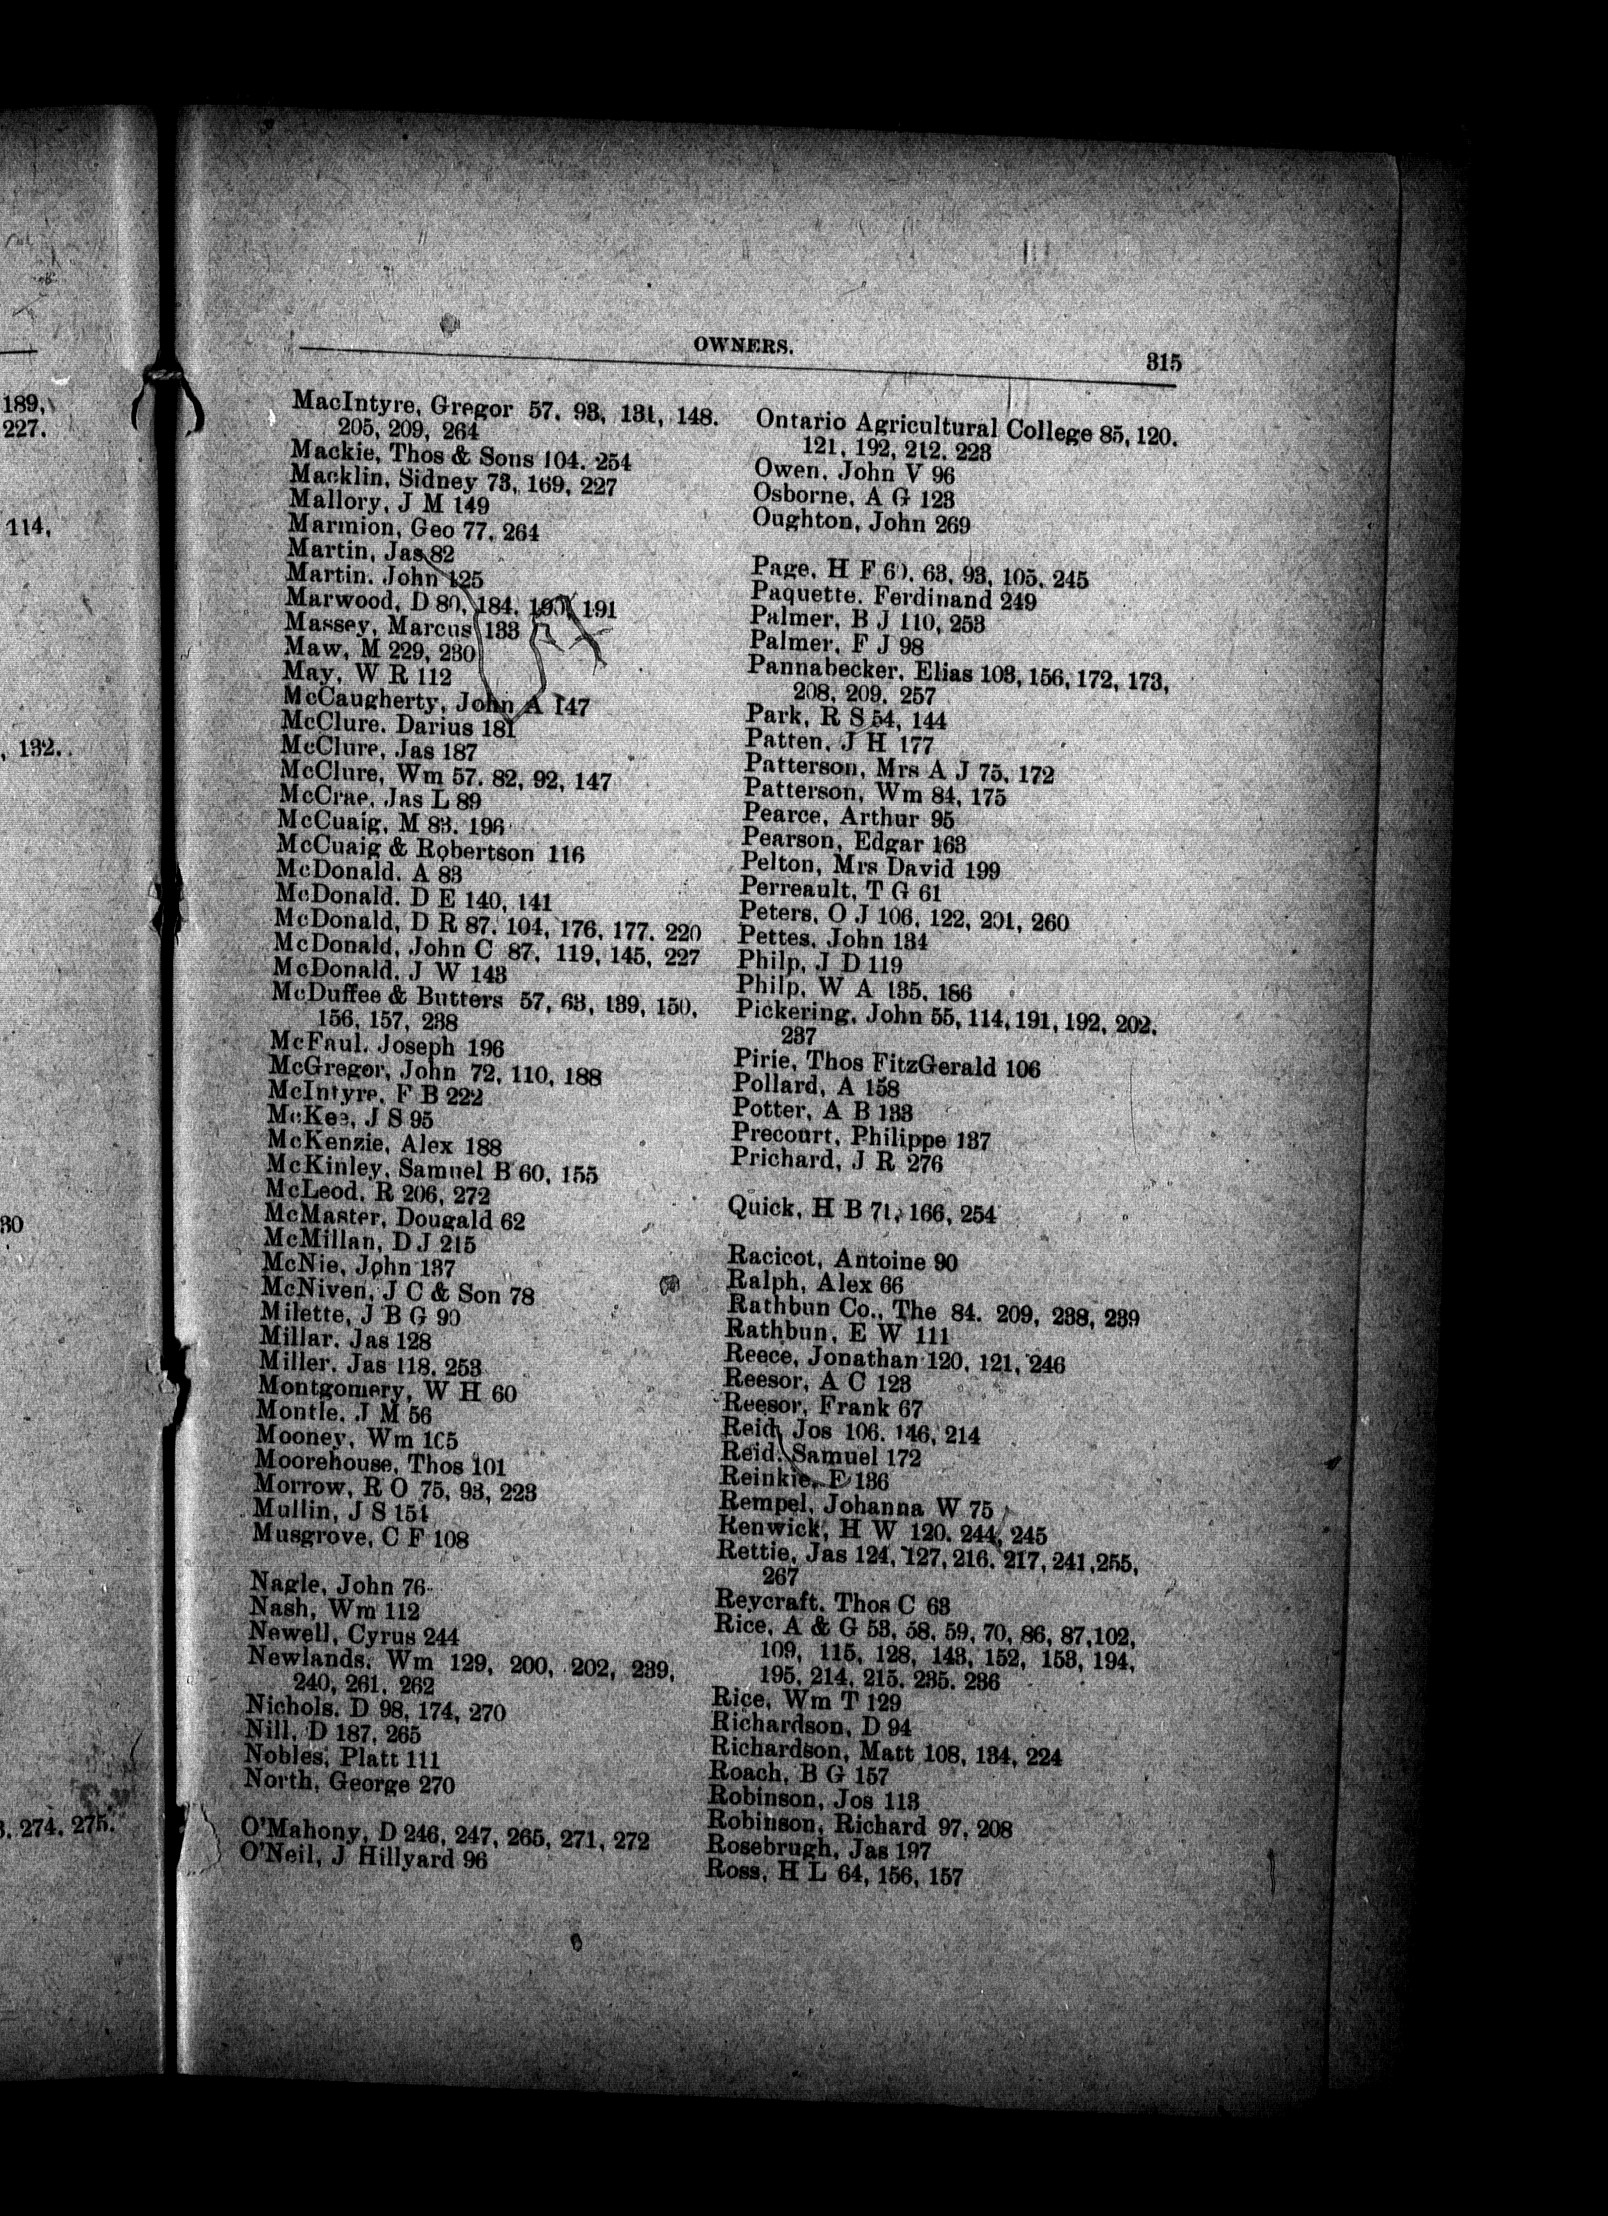 OWNERS.
315
MacIntyre, Gregor 57. 93, 131, 148.
205, 209, 264
Mackie, Thos & Sons 104. 254
Macklin, Sidney 73, 169, 227
Mallory, J M 149
Marmion, Geo 77, 264
Martin, Jas 82
Martin. John 125
Marwood, D 80, 184, 190, 191
Massey, Marcus 133
Maw, M 229, 230
May, W R 112
McCaugherty, John A 147
McClure. Darius 181
McClure, Jas 187
McClure, Wm 57. 82, 92, 147
McCrae, Jas L 89
McCuaig, M 83. 196
McCuaig & Robertson 116
McDonald. A 83
McDonald. D E 140, 141
McDonald, D R 87. 104, 176, 177. 220
McDonald, John C 87, 119, 145, 227
McDonald. J W 143
McDuffee & Butters 57, 63, 139, 150,
156, 157, 238
McFaul. Joseph 196
McGregor, John 72, 110, 188
McIntyre, F B 222
McKee, J S 95
McKenzie, Alex 188
McKinley, Samuel B 60, 155
McLeod, R 206, 272
McMaster, Dougald 62
McMillan, D J 215
McNie, John 137
McNiven, J C & Son 78
Milette, J B G 90
Millar. Jas 128
Miller. Jas 118. 253
Montgomery, W H 60
Montle. J M 56
Mooney, Wm 105
Moorehouse, Thos 101
Morrow, R O 75, 93, 223
Mullin, J S 151
Musgrove, C F 108
Nagle, John 76
Nash, Wm 112
Newell, Cyrus 244
Newlands. Wm 129, 200, 202, 239,
240, 261, 262
Nichols. D 98, 174, 270
Nill, D 187, 265
Nobles, Platt 111
North, George 270
O'Mahony, D 246, 247, 265, 271, 272
O'Neil, J Hillyard 96
Ontario Agricultural College 85, 120.
121, 192, 212. 223
Owen, John V 96
Osborne, A G 123
Oughton, John 269
Page, H F 60. 63, 93, 105. 245
Paquette. Ferdinand 249
Palmer, B J 110, 253
Palmer, F J 98
Pannabecker. Elias 103, 156, 172, 173,
208, 209. 257
Park, R S 54, 144
Patten, J H 177
Patterson, Mrs A J 75. 172
Patterson, Wm 84, 175
Pearce, Arthur 95
Pearson, Edgar 163
Pelton, Mrs David 199
Perreault, T G 61
Peters, O J 106, 122, 201, 260
Pettes, John 134
Philp, J D 119
Philp, W A 135. 186
Pickering, John 55, 114, 191, 192, 202.
237
Pirie, Thos FitzGerald 106
Pollard, A 158
Potter, A B 133
Precourt, Philippe 137
Prichard, J R 276
Quick, H B 71, 166, 254
Racicot, Antoine 90
Ralph, Alex 66
Rathbun Co., The 84. 209, 238, 239
Rathbun, E W 111
Reece, Jonathan 120, 121, 246
Reesor, A C 123
Reesor, Frank 67
Reid, Jos 106. 146, 214
Reid, Samuel 172
Reinkie, E 136
Rempel, Johanna W 75
Renwick, H W 120. 244, 245
Rettie, Jas 124, 127, 216. 217, 241, 255,
267
Reycraft. Thos C 63
Rice, A & G 53, 58, 59, 70, 86, 87, 102,
109, 115, 128, 143, 152, 153, 194,
195, 214, 215. 235. 236
Rice, Wm T 129
Richardson, D 94
Richardson, Matt 108, 134, 224
Roach, B G 157
Robinson, Jos 113
Robinson, Richard 97, 208
Rosebrugh, Jas 197
Ross, H L 64, 156, 157
189,
227.
114,
, 132.
274, 275.